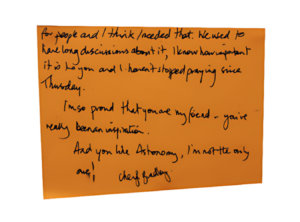 for people and I think I needed that. We used to
have long discussions about it, I know how important
it is to you and I haven't stopped praying since
Thursday.
I'm so proud that you are my friend - you've
really been an inspiration.
And you like Astronomy, I'm not the only
one!